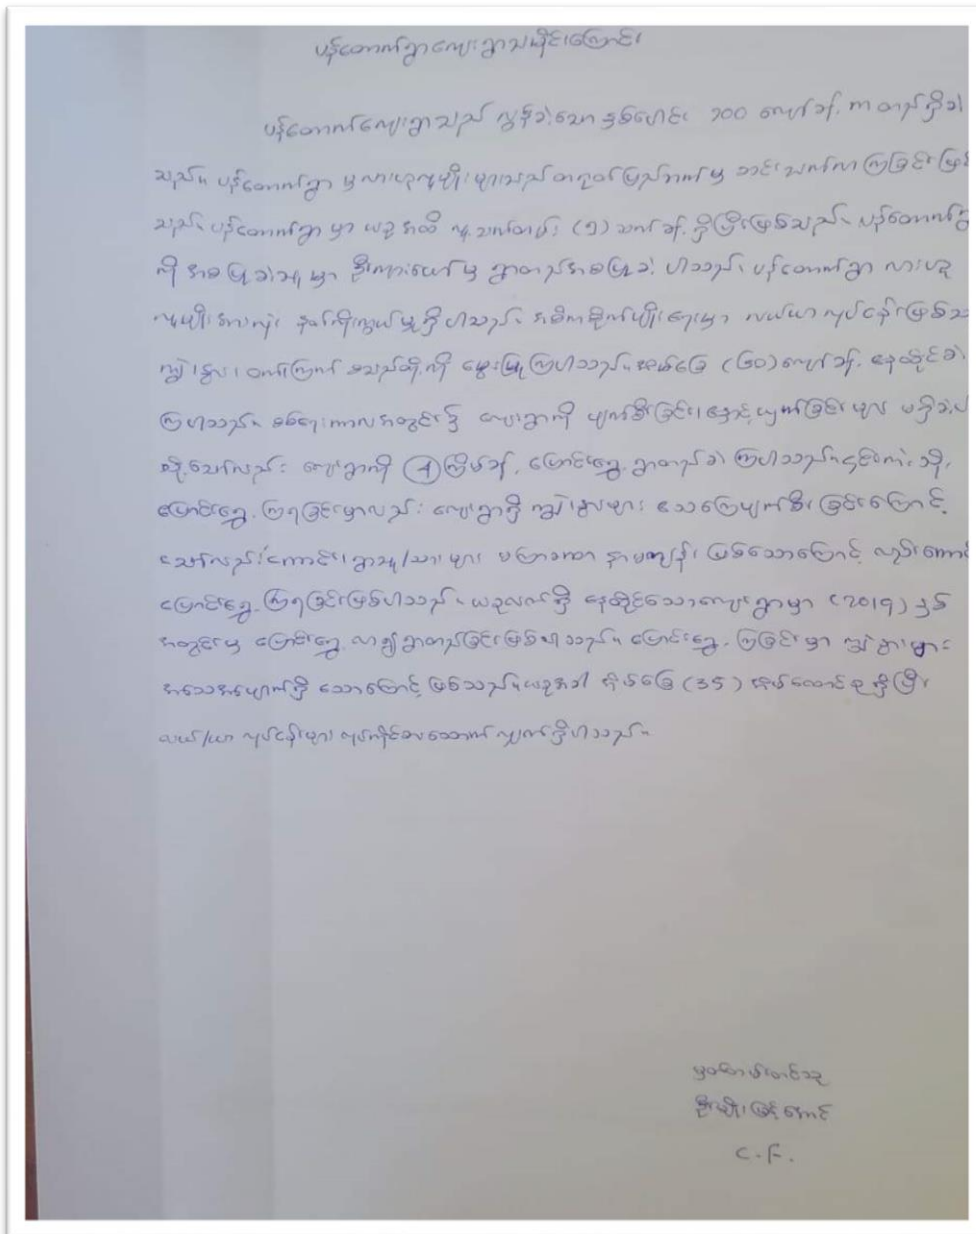 ပန်တောက်ရွာကျေးရွာသမိုင်းကြောင်း
ပန်တောက်ကျေးရွာသည် လွန်ခဲ့သော နှစ်ပေါင်း ၁၀၀ ကျော်ခန့် က တည်ရှိခဲ့
သည်။ ပန်တောက်ရွာ မှ လားဟူလူမျိုး များသည် တရုတ်ပြည်ဘက်မှ ဆင်းသက်လာကြခြင်းဖြစ်
သည်။ ပန်တောက်ရွာ မှာ ယခု အထိ လူ့သက်တမ်း (၅) ဆက် ခန့် ရှိပြီးဖြစ်သည်။ ပန်တောက်ရွာ
ကို အစပြုခဲ့သူ မှာ ဦးကျားပေါ် မှ ရွာတည်အစပြုခဲ့ ပါသည်။ ပန်တောက်ရွာ လားဟူ
လူမျိုး အားလုံး နတ်ကိုးကွယ်မှုရှိပါသည်။ အဓိကစိုက်ပျိုးရေးမှာ လယ်ယာလုပ်ငန်းဖြစ်သ
ကျွဲ၊ နွား၊ ဝက်၊ ကြက် စသည်တို့ကို မွေးမြူကြပါသည်။ အိမ်ခြေ (၆၀) ကျော်ခန့် နေထိုင်ခဲ့
ကြပါသည်။ စစ်ရေးကာလအတွင်း၌ ကျေးရွာကို ဖျက်ဆီးခြင်း၊ နှောင့်ယှက်ခြင်း များ မရှိခဲ့ပ
သို့သော်လည်း ကျေးရွာကို (၄) ကြိမ်ခန့် ပြောင်းရွှေ့ ရွာတည်ခဲ့ ကြပါသည်။ ၎င်းကဲ့သို့
ပြောင်းရွှေ့ ကြရခြင်းမှာလည်း ကျေးရွာရှိ ကျွဲ၊ နွားများ သေကြေပျက်စီးခြင်းကြောင့်
သော်လည်းကောင်း၊ ရွာသူ/သား များ မကြာခဏ နာမကျန်း ဖြစ်သောကြောင့် လည်းကောင်
ပြောင်းရွှေ့ ကြရခြင်းဖြစ်ပါသည်။ ယခုလက်ရှိ နေထိုင်သောကျေးရွာမှာ (2019) ခုနှစ်
အတွင်းမှ ပြောင်းရွှေ့ လာ၍ ရွာတည်ခြင်းဖြစ်ပါသည်။ ပြောင်းရွှေ့ ကြခြင်း မှာ ကျွဲ နွားများ
အသေအပျောက်ရှိ သောကြောင့် ဖြစ်သည်။ ယခုအခါ အိမ်ခြေ (35) အိမ်ထောင်စု ရှိပြီး
လယ်/ယာ လုပ်ငန်းများ လုပ်ကိုင်စားသောက်လျှက်ရှိပါသည်။
မှတ်တမ်းတင်သူ
ဦးမျိုးမြင့်အောင်
C.F.